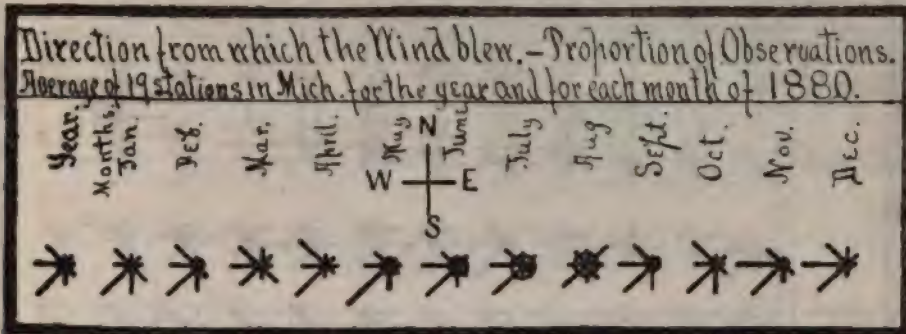 Direction from which the Wind blew.–Proportion of Observations.
Average of 19 stations in Mich. for the year and for each month of 1880.
Year.
Months,
Jan.
Feb.
Mar.
April.
May
N
June
July
Aug
Sept.
Oct.
Nov.
Dec.
W
E
S